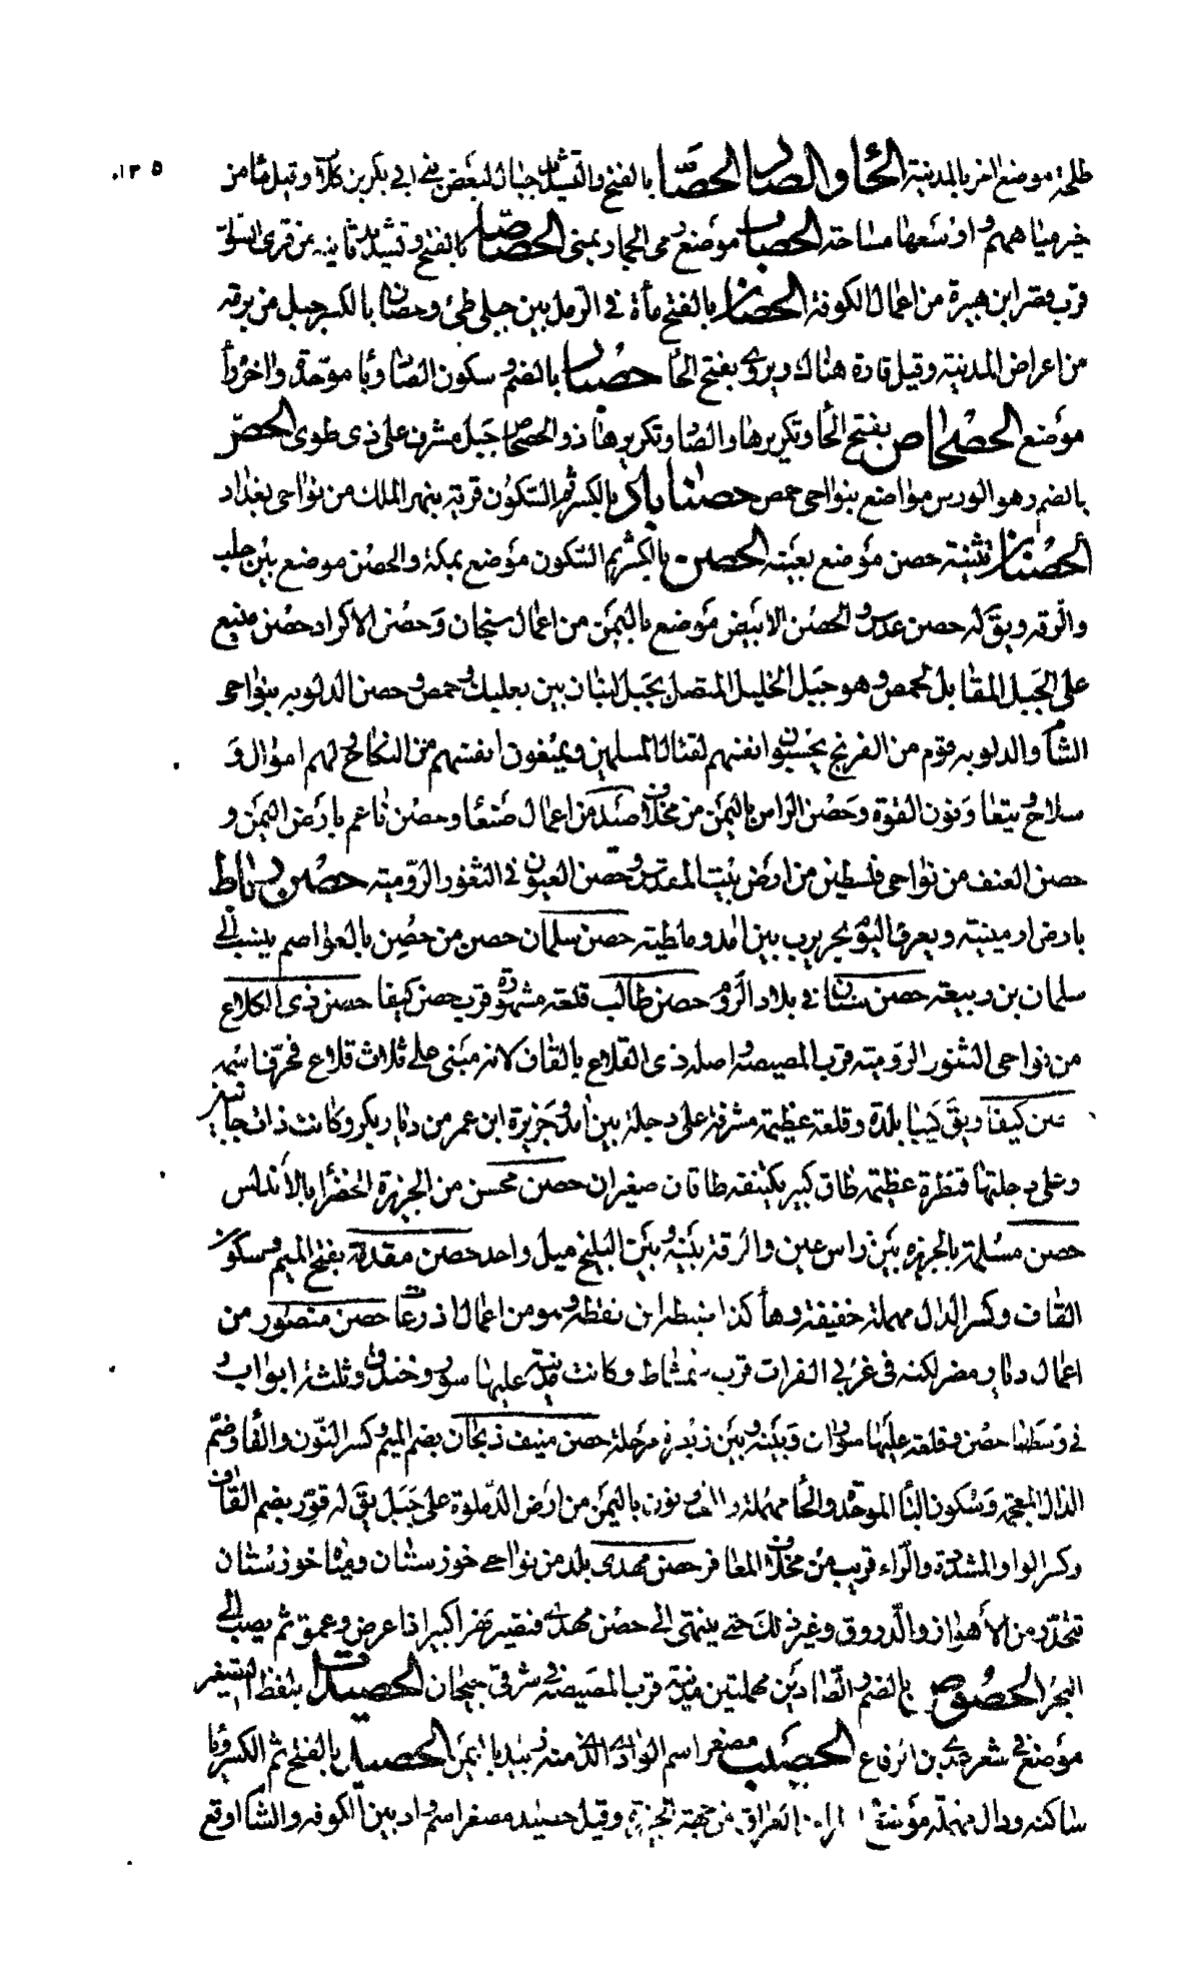 ١٣٥
طلحة موضع اخر بالمدينة الحاء والصاد الحصّا بالفتح والتشديد جبال لبعض بني ابي بكر بن كلاب وقيل ماء من
خير مياههم واوسعها مساحة الحصاب موضع رمى الجمار بمنى الحصاصة بالفتح وتشديد ثانيه من قرى السواد
قرب قصر ابن هبيرة من اعمال الكوفة الحصان بالفتح مأة في الرمل بين جبلى طئ وحصان بالكسر جبل من برقه
من اعراض المدينة وقيل قارة هناك ويروى بفتح الحأ حصبار بالضم وسكون الصاد وبا موحدة واخره رأ
موضع الحصحاص بفتح الحأ وتكريرها والصاد وتكريرها ذو الحصحاص جبل مشرف على ذى طوى الحصّ
بالضم وهو الورس مواضع بنواحى حمص حصناباذ بالكسر ثم السكون قرية بنهر الملك من نواحى بغداد
الحصنان تثنية حصن موضع بعينه الحصن بالكسر ثم السكون موضع بمكة والحصن موضع بين حلب
والرقة ويق له حصن عديس والحصن الابيض موضع باليمن من اعمال سنجان وحصن الاكراد حصن منيع
على الجبل المقابل لحمص وهو جبل الخليل المتصل بجبل لبنان بين بعلبك وحمص وحصن الداويه بنواحى
الشام والداويه قوم من الفرنج يحبسوا انفسهم لقتال المسلمين ويمنعون انفسهم من النكاح لهم اموال و
سلاح يتعانون القوة وحصن الراس باليمن من مخلاف صداء من اعمال صنعا وحصن ناعم بارض اليمن و
حصن العنف من نواحى فلسطين من ارض بيت المقدس وحصن العيون في الثغور الروميّة حصن
بارض ارمينية ويعرف اليوم بين امد وملطية حصن سلمان حصن من حصن بالعواصم ينسب الى
سلمان بن ربيعة حصن سنان في بلاد الروم حصن طالب قلعة مشهورة قرب حصن كيفا حصن ذى الكلاع
من نواحى الثغور الرومية قرب المصيصة واصله ذى القلاع بالقاف لانه مبنى على ثلاث قلاع فحرّف اسمه
حصن كيفا ويق كيبا بلدة وقلعة عظيمة مشرفة على دجلة بين امد وجزيرة ابن عمر من ديار بكر وكانت ذات جانبين
وعلى دجلتها قنطرة عظيمة طاق كبير يكتنفه طاقان صغيران حصن محسن من الجزيرة الخضرأ بالأندلس
حصن مسلمة بالجزيره بين راس عين والرقة بينه وبين البليخ ميل واحد حصن مقدية بفتح الميم وسكون
القاف وكسر الدال مهملة خفيفة وهأ كذا ضبطه ابن نقطة وهو من اعمال اذرعات حصن منصور من
اعمال ديار مضر لكنه في غربي الفرات قرب سمشاط وكانت مدينة عليها سور وخندق وثلثة ابواب و
في وسطها حصن وقلعة عليها سوران وبينه وبين زبدة مرحلة حصن منيف ذبحان بضم الميم وكسر النون والفأ وضم
الذال المعجمة وسكون البأ الموحدة والحأ مهملة والف ونون باليمن من ارض الدملوة على جبل يق له قوّر بضم القاف
وكسر الواو المشددة والراء قريب من مخلاف المعافر حصن مهدى بلد من نواحى خوزستان ومياه خوزستان
تتحدر من الأهواز والدورق وغير ذلك حتى ينتهى الى حصن مهدى فتصير نهرا كبيرا ذا عرض وعمق ثم يصب الى
البحر الحصوص بالضم والصادين مهملتين مدينة قرب المصيصة في شرقي جيحان الحصيات بلفظ التصغير
موضع في شعر عدي بن الرقاع الحصيب مصغر اسم الوادى الذى منه زبيد باليمن الحصيد بالفتح ثم الكسر ويا
ساكنه ودال مهملة موضع العراق من جهة الجزيرة وقيل حصيد مصغرا اسم واد بين الكوفه والشام اوقع